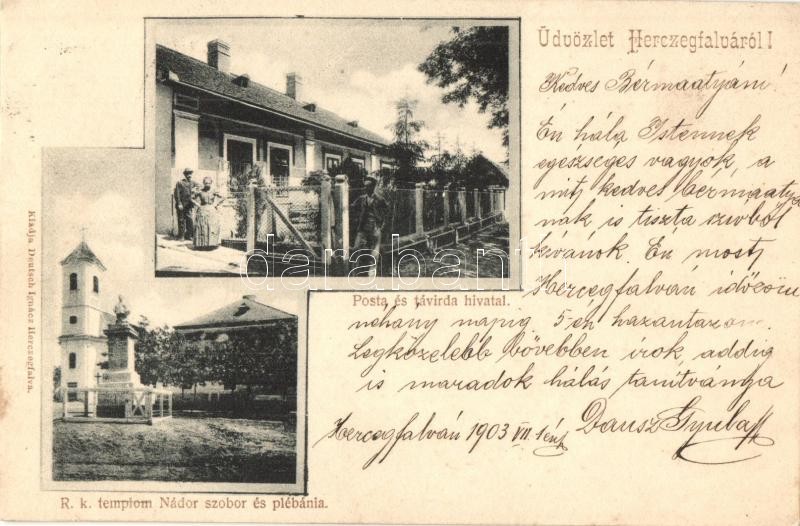 Üdvözlet Herczegfalváról!
Kedves Bérmaatyám!
Én hála Istennek
egészséges vagyok, a
mit kedves bérmaatyá
nak is tiszta szivből
kívánok. Én most
Hercégfalván időzöm
néhany napig 5-én hazautazom.
Legközelebb bővebben írok, addig
is maradok hálás tanítványa
Hercegfalván 1903 VII. 1én
Dausz Gyula
Posta és távirda hivatal.
R. k. templom Nádor szobor és plébánia.
Kiadja Deutsch Ignácz Herczegfalva.
darabanth.com